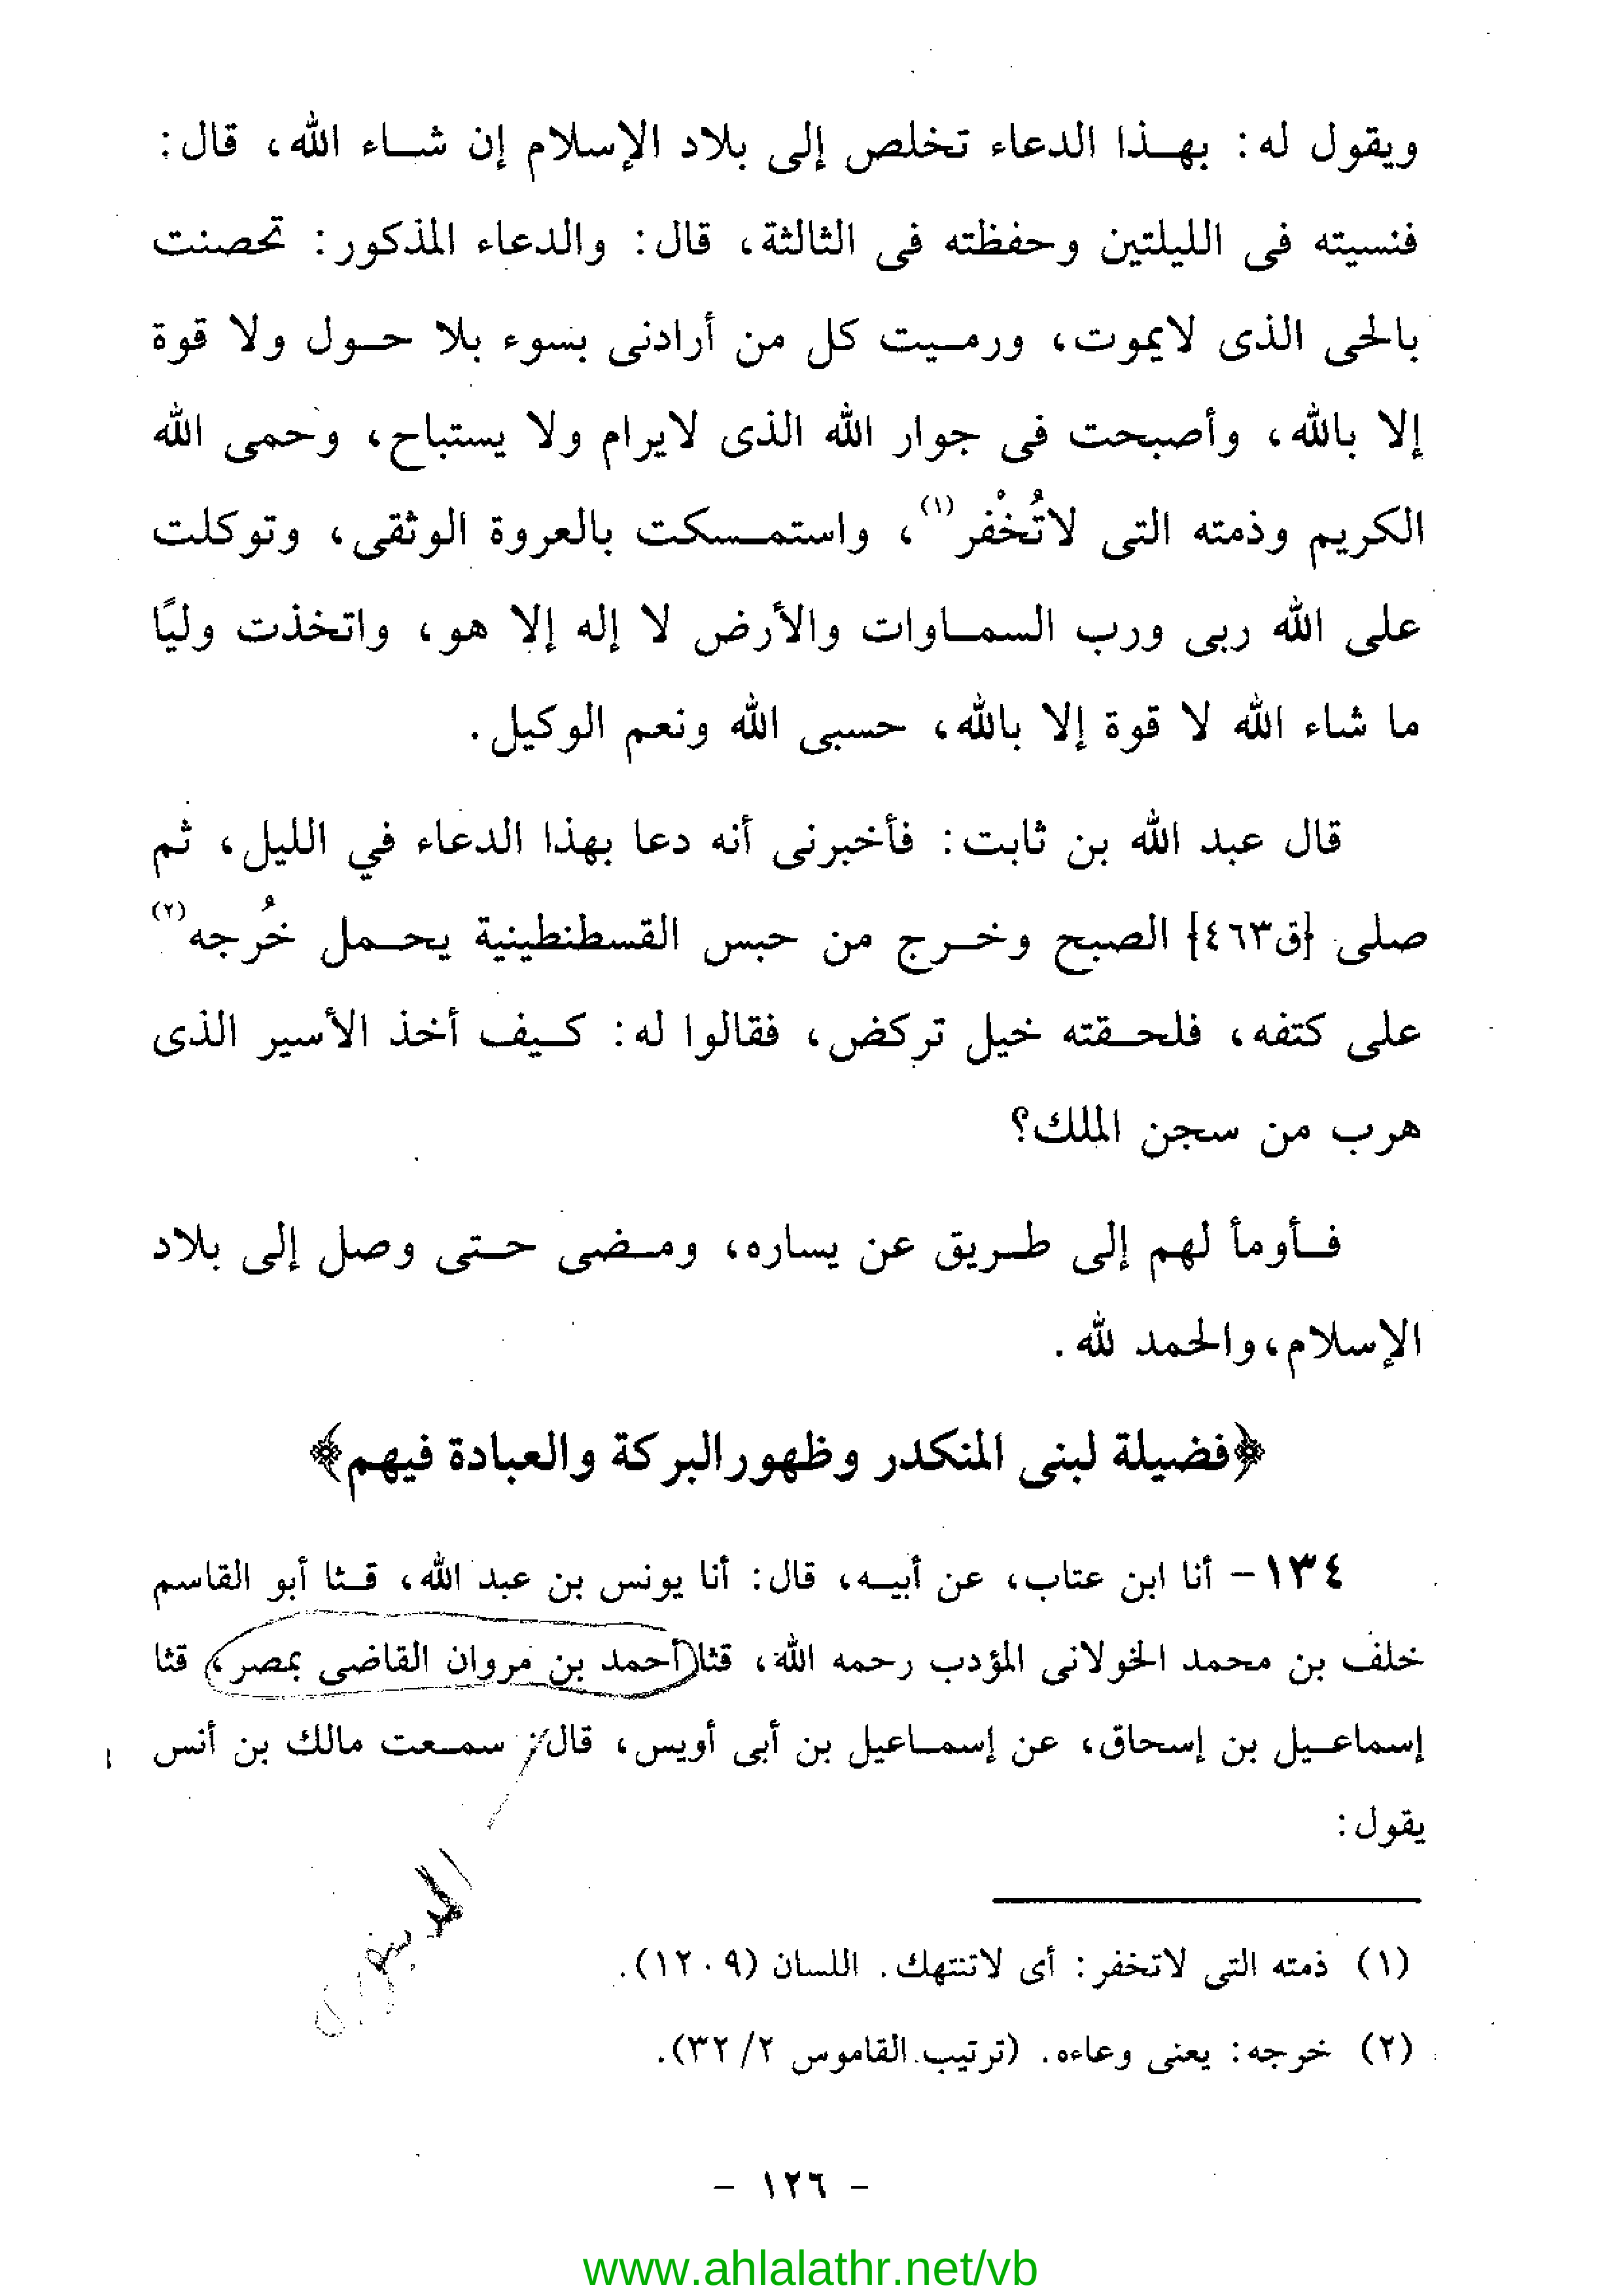 ويقول له: بهـذا الدعاء تخلص إلى بلاد الإسلام إن شـاء الله، قال:
فنسيته فى الليلتين وحفظته فى الثالثة، قال: والدعاء المذكور: تحصنت
بالحى الذى لايموت، ورمـيت كل من أرادنى بسوء بلا حـول ولا قوة
إلا بالله، وأصبحت فى جوار الله الذى لايرام ولا يستباح، وحمى الله
الكريم وذمته التى لاتُخْفر(١)، واستمـسكت بالعروة الوثقى، وتوكلت
على الله ربى ورب السمـاوات والأرض لا إله إلا هو، واتخذت وليًا
ما شاء الله لا قوة إلا بالله، حسبى الله ونعم الوكيل.
قال عبد الله بن ثابت: فأخبرنى أنه دعا بهذا الدعاء في الليل، ثم
صلى {ق٤٦٣} الصبح وخـرج من حبس القسطنطينية يحـمل خُرجه(٢)
على كتفه، فلحـقته خيل تركض، فقالوا له: كـيف أخذ الأسير الذى
هرب من سجن الملك؟
فـأومأ لهم إلى طـريق عن يساره، ومـضى حـتى وصل إلى بلاد
الإسلام،والحمد لله.
﴿فضيلة لبنى المنكدر وظهورالبركة والعبادة فيهم﴾
١٣٤- أنا ابن عتاب، عن أبيـه، قال: أنا يونس بن عبد الله، قـثا أبو القاسم
خلف بن محمد الخولانى المؤدب رحمه الله، قثا أحمد بن مروان القاضى بمصر، قثا
إسماعـيل بن إسحاق، عن إسمـاعيل بن أبى أويس، قال: سمـعت مالك بن أنس
يقول:
(١) ذمته التى لاتخفر: أى لاتنتهك. اللسان (١٢٠٩).
(٢) خرجه: يعنى وعاءه. (ترتيب القاموس ٣٢/٢).
- ١٢٦ -
www.ahlalathr.net/vb